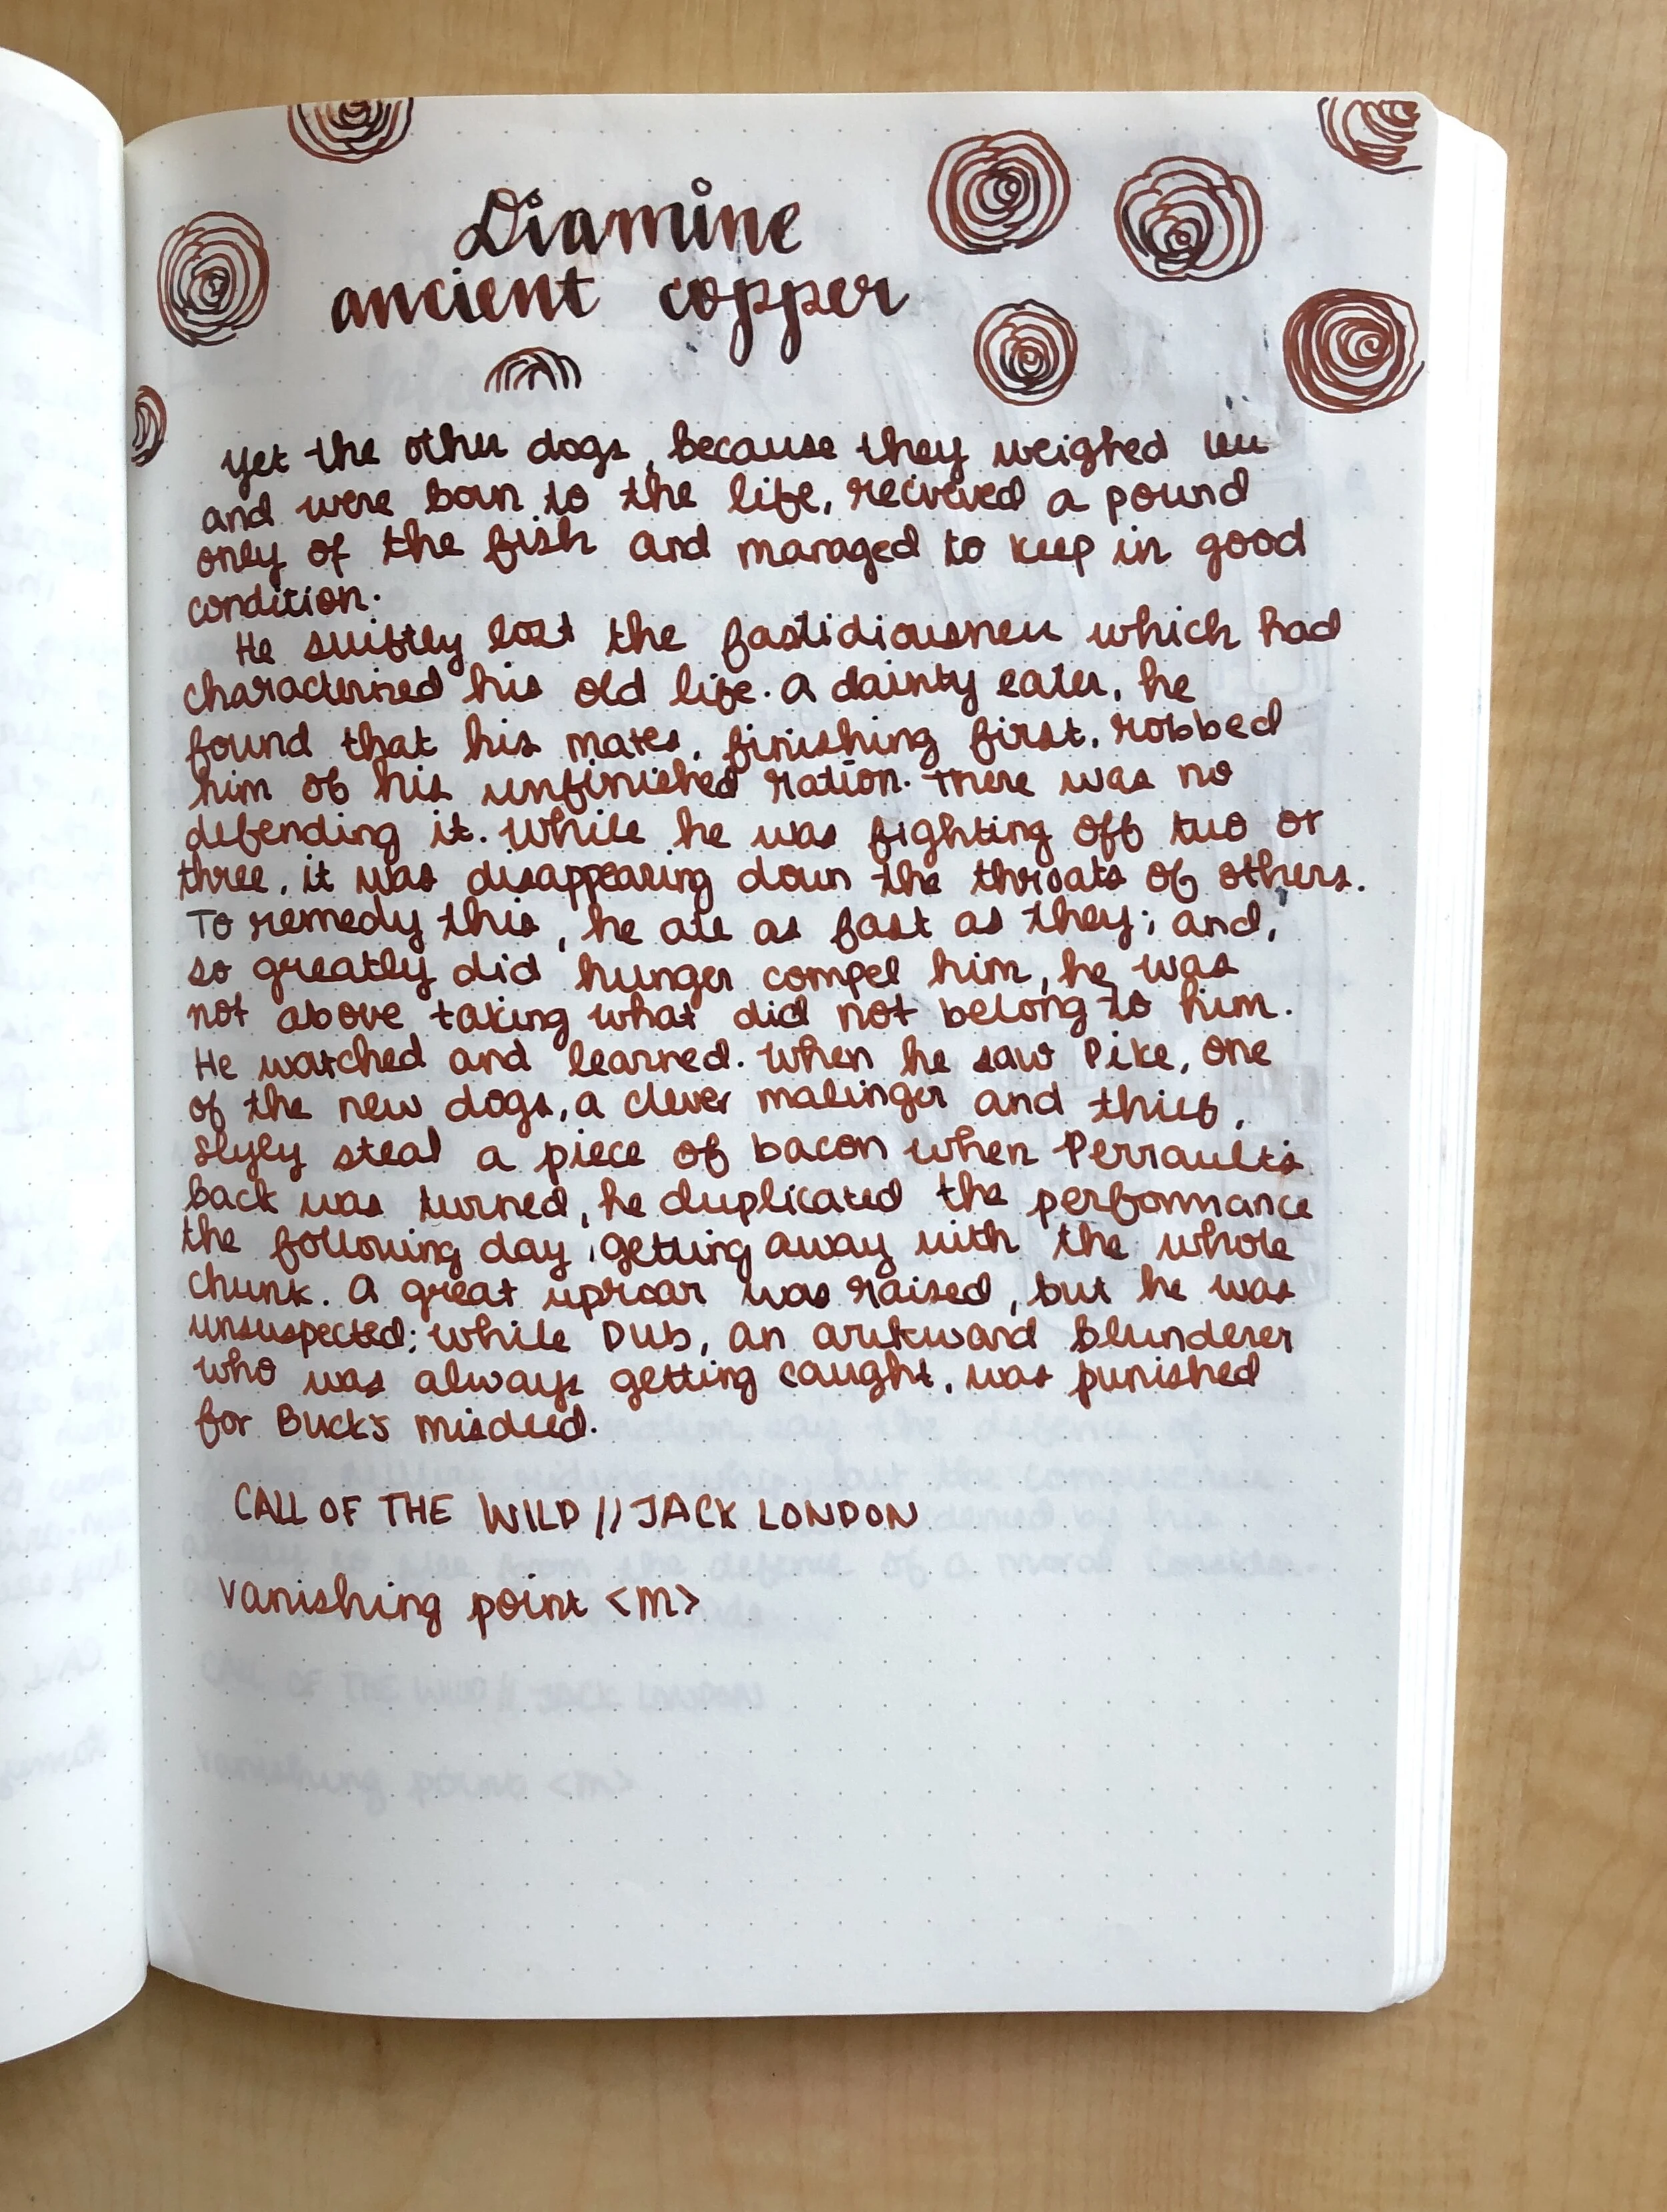 Diamine
ancient copper
Yet the other dogs, because they weighed less
and were born to the life, recieved a pound
only of the fish and managed to keep in good
condition.
He swiftly lost the fastidiousness which had
characterized his old life. A dainty eater, he
found that his mates, finishing first, robbed
him of his unfinished ration. There was no
defending it. While he was fighting off two or
three, it was disappearing down the throats of others.
To remedy this, he ate as fast as they; and,
so greatly did hunger compel him, he was
not above taking what did not belong to him.
He watched and learned. When he saw Pike, one
of the new dogs, a clever malinger and thief,
slyly steal a piece of bacon when Perrault's
back was turned, he duplicated the performance
the following day, getting away with the whole
chunk. A great uproar was raised, but he was
unsuspected; while Dub, an awkward blunderer
who was always getting caught, was punished
for Buck's misdeed.
CALL OF THE WILD // JACK LONDON
Vanishing point <m>